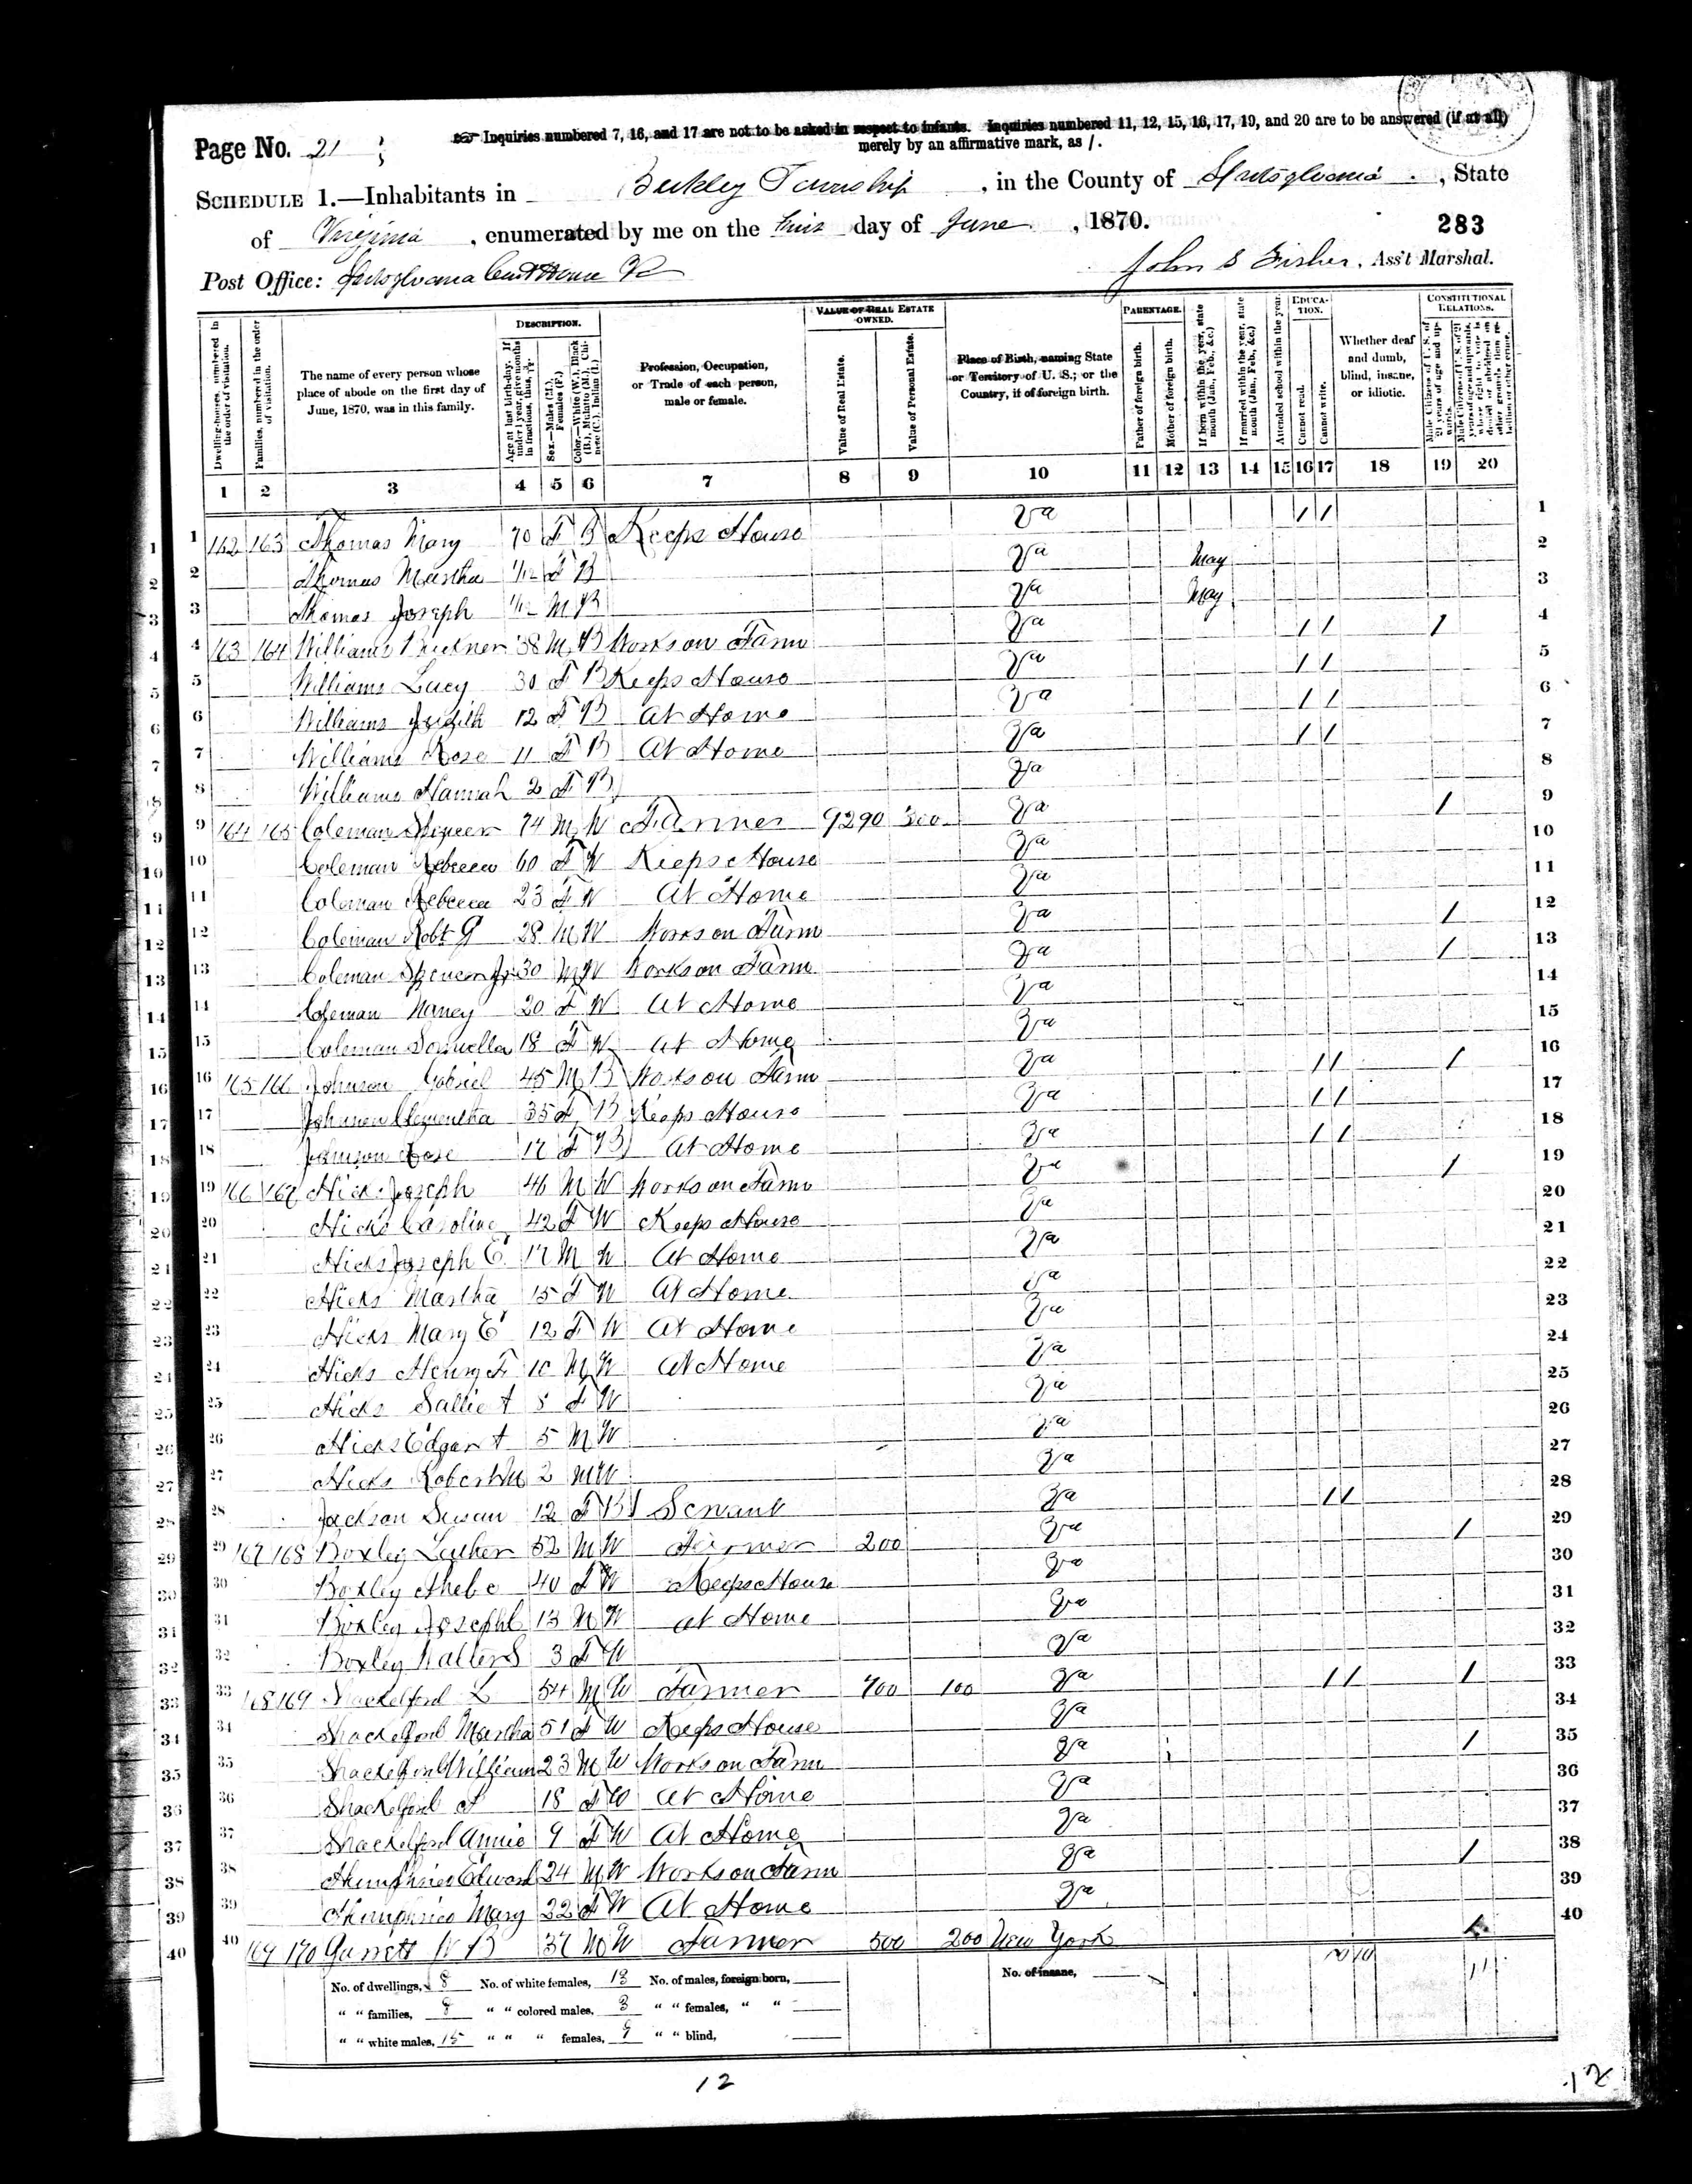 Page No. 21
Inquiries numbered 7, 16, and 17 are not to be asked in respect to infants. Inquiries numbered 11, 12, 15, 16, 17, 19, and 20 are to be answered (if at all)
merely by an affirmative mark, as /.
SCHEDULE 1.—Inhabitants in Berkley Township, in the County of Spotsylvania, State
of Virginia, enumerated by me on the day of June, 1870.
283
Post Office: Spotsylvania Court House Va
John S Fisher, Ass't Marshal.
Dwelling-houses, numbered in the order of visitation.
Families, numbered in the order of visitation.
The name of every person whose place of abode on the first day of June, 1870, was in this family.
DESCRIPTION.
Age at last birth-day. If under 1 year, give months in fractions, thus,
Sex.—Males (M.), Females (F.)
Color.—White (W.), Black (B.), Mulatto (M.), Chinese (C.), Indian (I.)
Profession, Occupation, or Trade of each person, male or female.
VALUE OF REAL ESTATE OWNED.
Value of Real Estate.
Value of Personal Estate.
Place of Birth, naming State or Territory of U. S.; or the Country, if of foreign birth.
PARENTAGE.
Father of foreign birth.
Mother of foreign birth.
If born within the year, state month (Jan., Feb., &c.)
If married within the year, state month (Jan., Feb., &c.)
Attended school within the year.
EDUCATION.
Cannot read.
Cannot write.
Whether deaf and dumb, blind, insane, or idiotic.
CONSTITUTIONAL RELATIONS.
Male Citizens of U. S. of 21 years of age and upwards.
Male Citizens of U. S. of 21 years of age and upwards, whose right to vote is denied or abridged on other grounds than rebellion or other crime.
1 2 3 4 5 6 7 8 9 10 11 12 13 14 15 16 17 18 19 20
1 162 163 Thomas Mary 70 F B Keeps House Va / / 1
2 Thomas Martha 1/12 F B Va May 2
3 Thomas Joseph 1/12 M B Va May 3
4 163 164 Williams Buckner 38 M B Works on Farm Va / / / 4
5 Williams Lucy 30 F B Keeps House Va / / 5
6 Williams Judith 12 F B At Home Va / / 6
7 Williams Rose 11 F B At Home Va / / 7
8 Williams Hannah 2 F B Va 8
9 164 165 Coleman Spencer 74 M W Farmer 9290 300 Va / 9
10 Coleman Rebecca 60 F W Keeps House Va 10
11 Coleman Rebecca 23 F W At Home Va 11
12 Coleman Robt G 28 M W Works on Farm Va / 12
13 Coleman Spencer Jr 30 M W Works on Farm Va / 13
14 Coleman Nancy 20 F W At Home Va 14
15 Coleman 18 F W At Home Va 15
16 165 166 Johnson Gabriel 45 M B Works on Farm Va / / / 16
17 Johnson Clementha 35 F B Keeps House Va / / 17
18 Johnson Rose 17 F B At Home Va / / 18
19 166 167 Hicks Joseph 46 M W Works on Farm Va / 19
20 Hicks Caroline 42 F W Keeps House Va 20
21 Hicks Joseph E 17 M W At Home Va 21
22 Hicks Martha 15 F W At Home Va 22
23 Hicks Mary E 12 F W At Home Va 23
24 Hicks Henry F 10 M W At Home Va 24
25 Hicks Sallie A 8 F W Va 25
26 Hicks Edgar A 5 M W Va 26
27 Hicks Robert M 2 M W Va 27
28 Jackson Susan 12 F B Servant Va / / 28
29 167 168 Boxley Luther 52 M W Farmer 200 Va / 29
30 Boxley Phebe 40 F W Keeps House Va 30
31 Boxley Joseph C 13 M W at Home Va 31
32 Boxley Waller S 3 F W Va 32
33 168 169 Shackelford L 54 M W Farmer 700 100 Va / / / 33
34 Shackelford Martha 51 F W Keeps House Va 34
35 Shackelford William 23 M W Works on Farm Va / 35
36 Shackelford A 18 F W At Home Va 36
37 Shackelford Annie 9 F W At Home Va 37
38 Humphries Edward 24 M W Works on Farm Va / 38
39 Humphries Mary 22 F W At Home Va 39
40 169 170 Garrett W B 37 M W Farmer 500 200 New York / 40
No. of dwellings, 8 No. of white females, 13 No. of males, foreign born, No. of insane,
" " families, 8 " " colored males, 3 " " females, " "
" " white males, 15 " " " females, 9 " " blind,
12